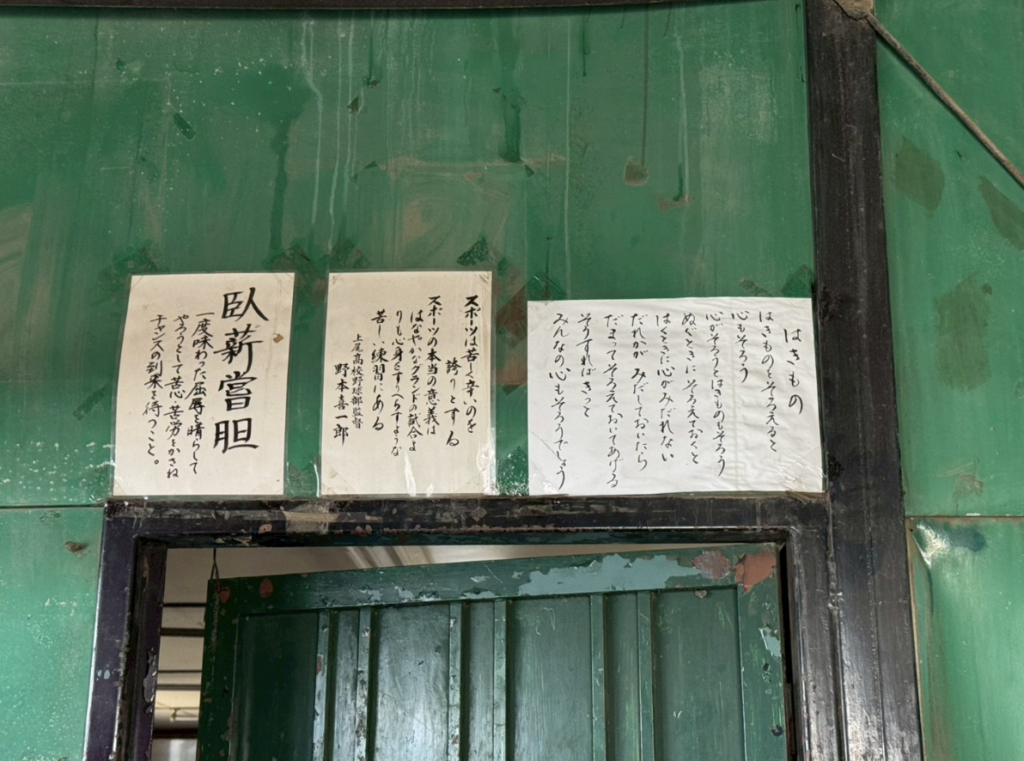 はきもの
はきものをそろえると
心もそろう
心がそろうとはきものもそろう
ぬぐときにそろえておくと
はくときに心がみだれない
だれかが みだしておいたら
だまってそろえておいてあげよう
そうすればきっと
みんなの心もそろうでしょう
スポーツは苦しく辛いのを
誇りとする
スポーツの本当の意義は
はなやかなグランドの試合よ
りも心身をすりへらすような
苦しい練習にある
上尾高校野球部監督
野本喜一郎
臥薪嘗胆
一度味わった屈辱を晴らして
やろうとして苦心 苦労をかさね
チャンスの到来を待つこと。